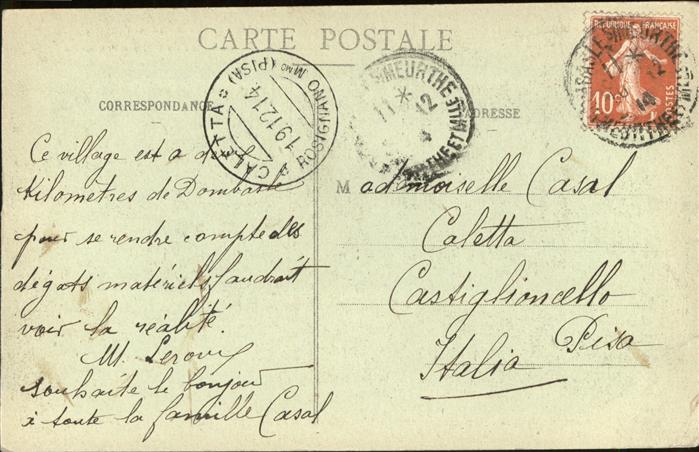 CARTE POSTALE
CORRESPONDANCE
ADRESSE
RÉPUBLIQUE FRANÇAISE
10
POSTES
CALETTA
ROSIGNANO Mmo (PISA)
19 12 14
MEURTHE ET M
11 * 12
MEURTHE ET M
11 * 12
14
Ce village est a
Kilometres de Dombasle
pour se rendre compte des
dégats matériels faudrait
voir la réalité.
M.
souhaite le bonjour
à toute la famille Casal
Mademoiselle Casal
Caletta
Castiglioncello
Pisa
Italia